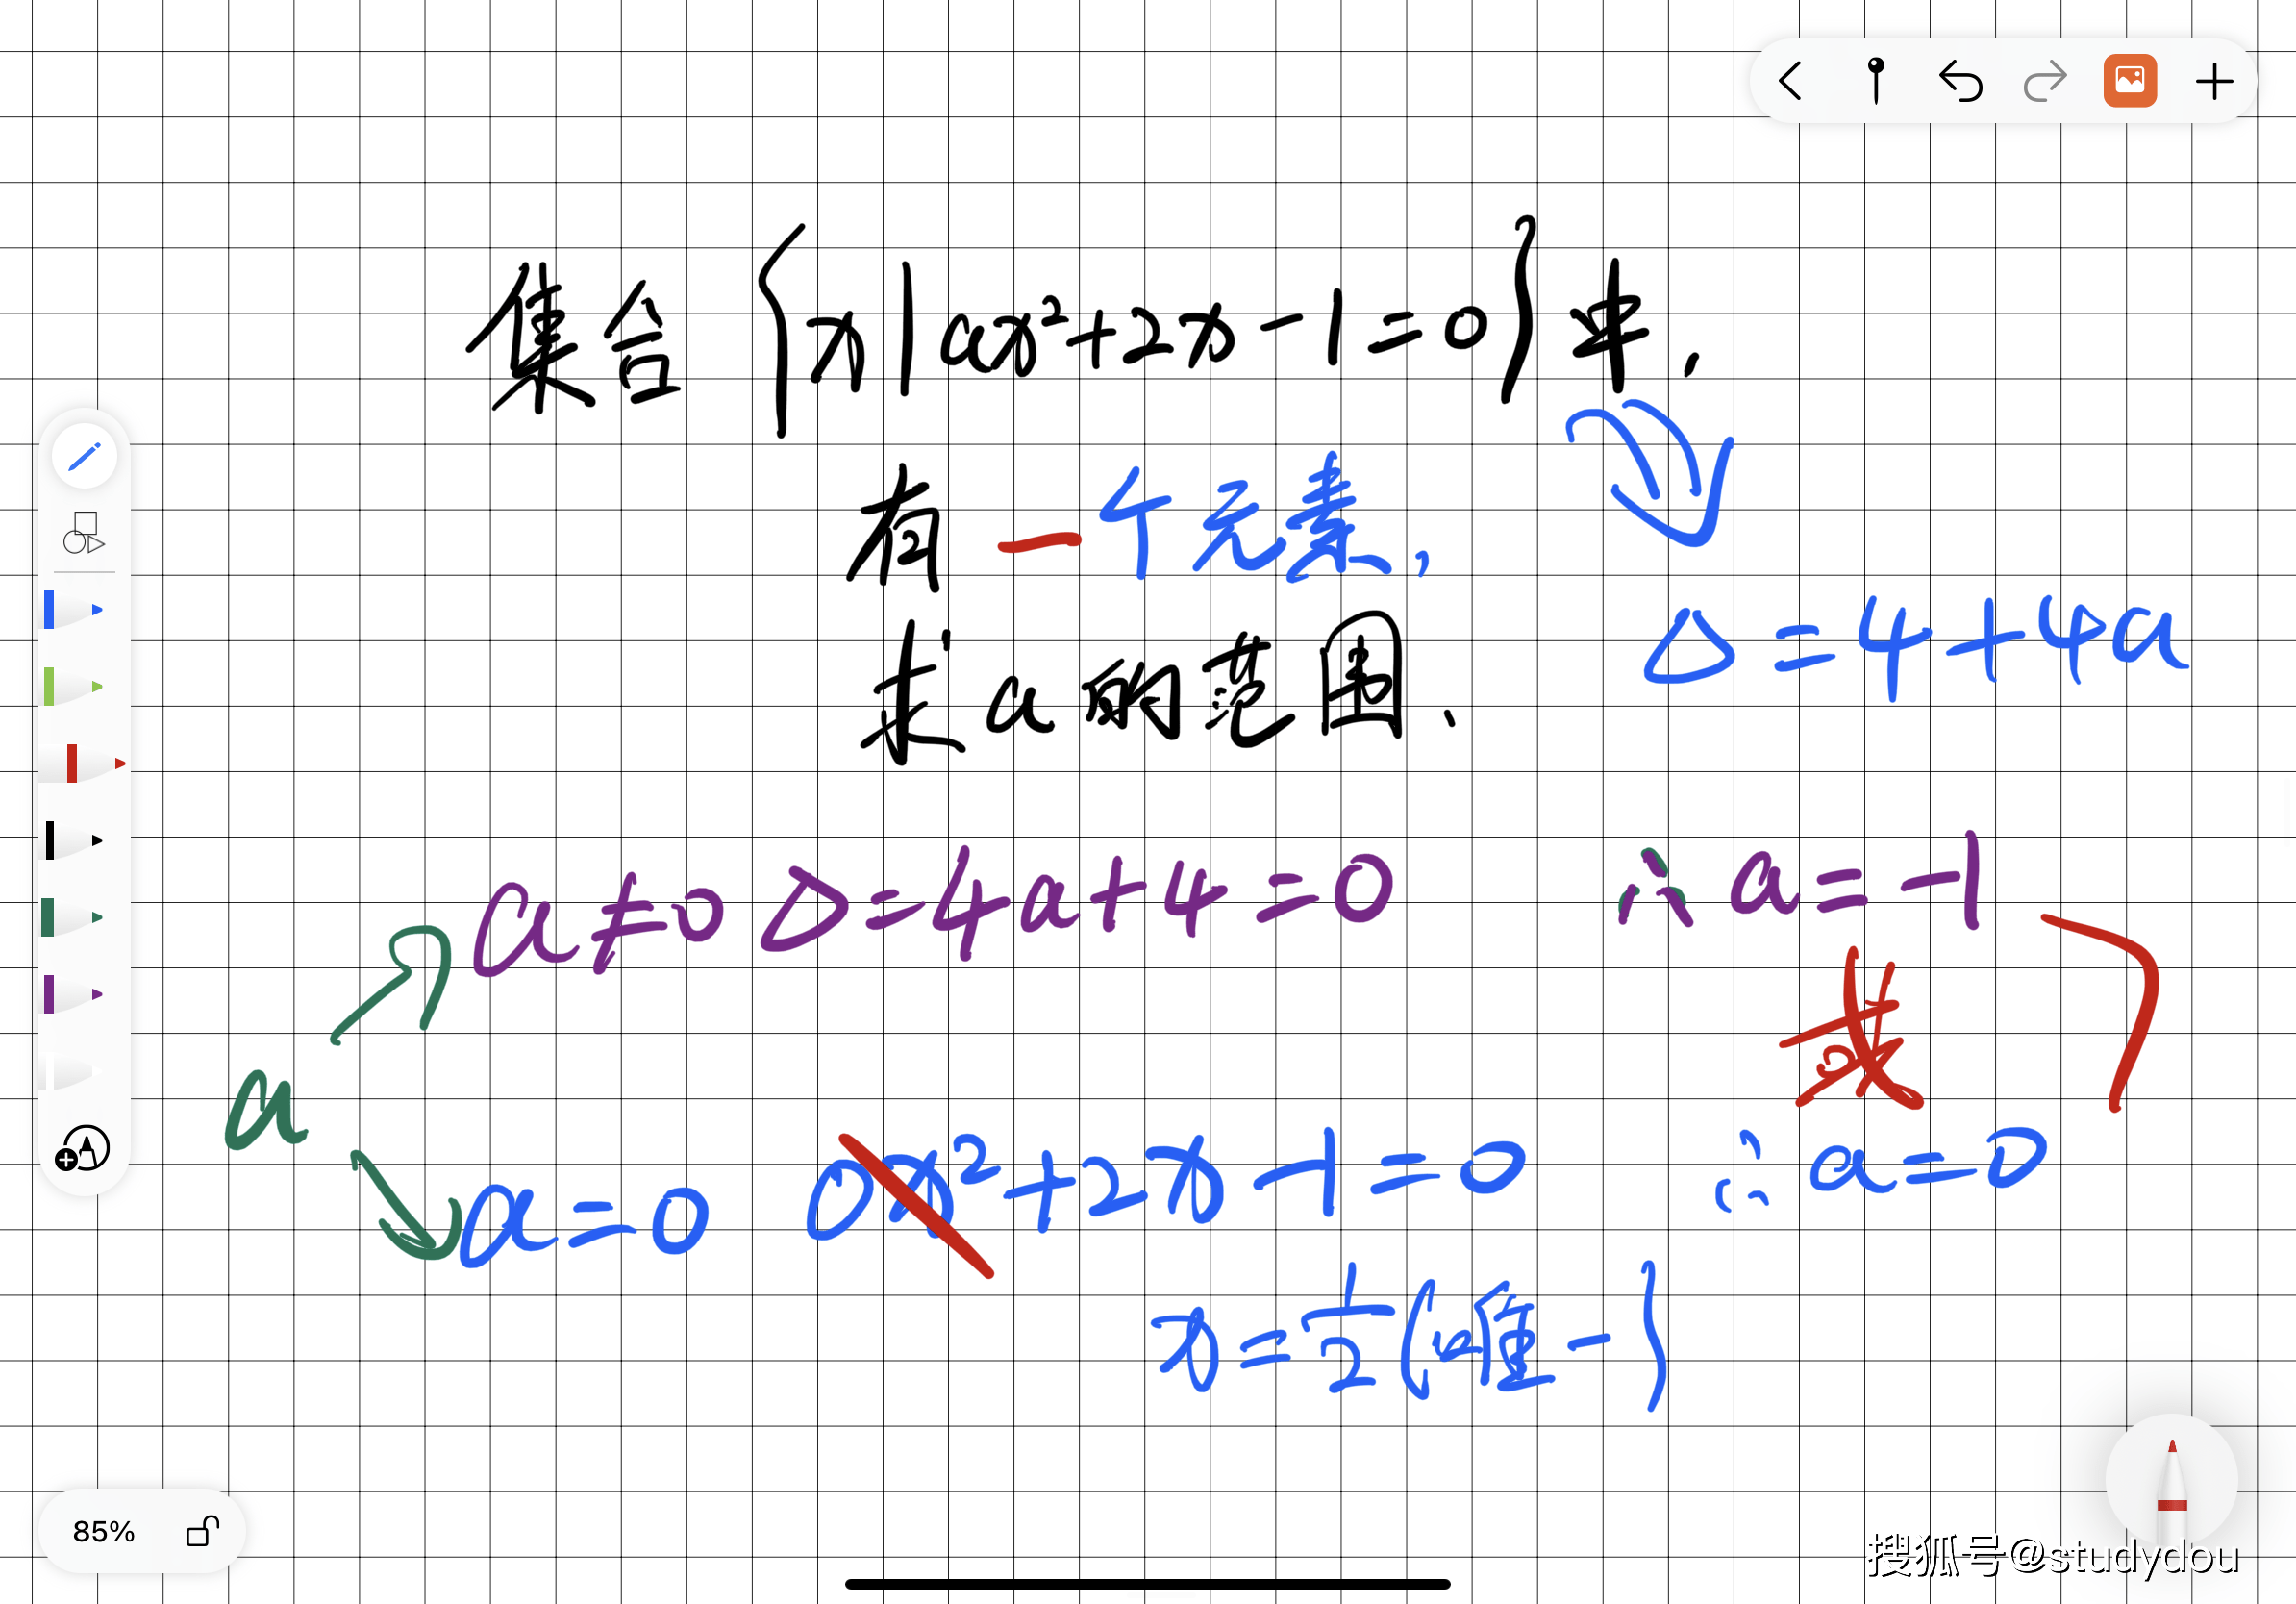 集合{x|ax²+2x-1=0}中,
有一个元素,
求a的范围.
Δ=4+4a
a≠0 Δ=4a+4=0 ∴a=-1
或
a
a=0 0x²+2x-1=0 ∴a=0
x=1/2(唯一)
85%
搜狐号@studydou